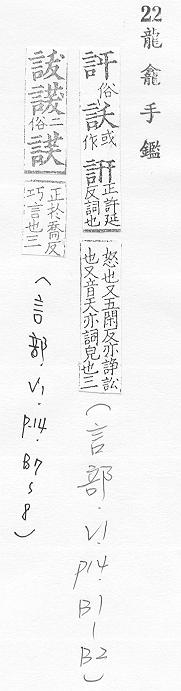 22 龍龕手鑑
訐俗 訞或作 訮正許延反詞也
怒也又五閑反亦諍訟也又音天亦詞皃也三
(言部.V1.P14.B1-B2)
俗二
正於喬反巧言也三
(言部.V1.P14.B7~8)